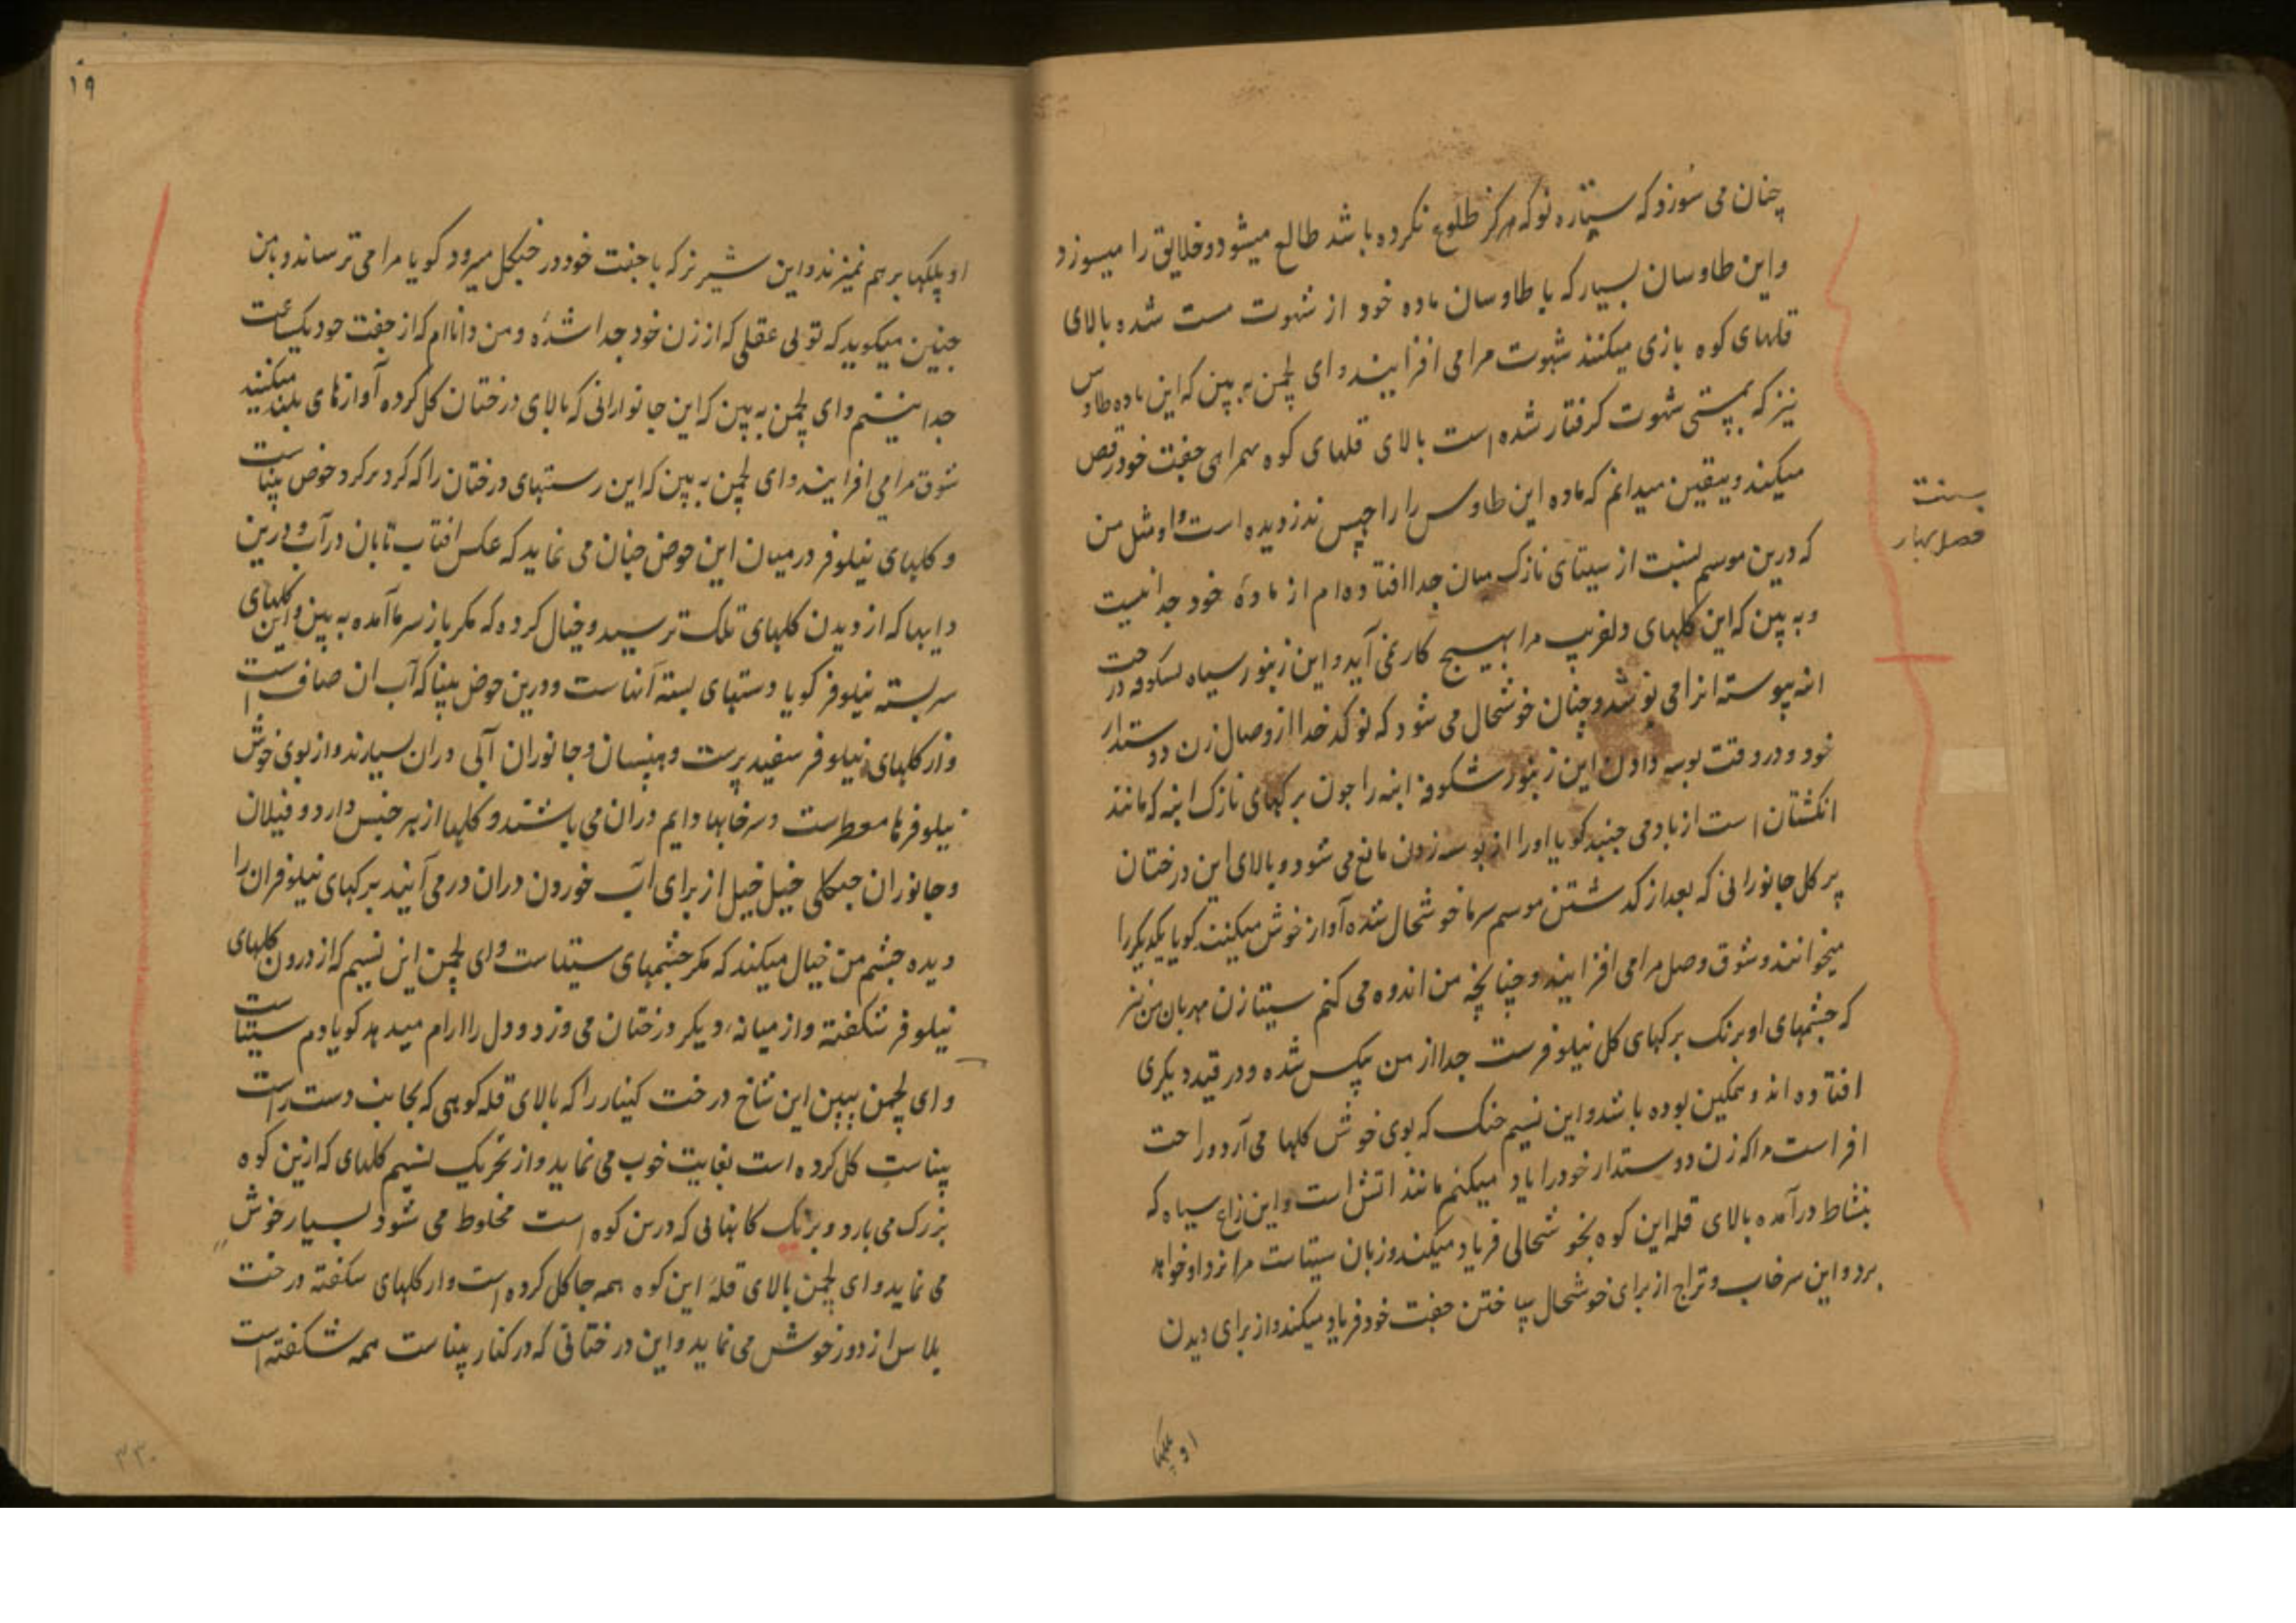 چنان می سوزد که ستاره نو که هرکز طلوع نکرده باشد طالع میشود و خلایق را میسوزد
واین طاوسان بسیار که با طاوسان ماده خود از شهوت مست شده بالای
قلهای کوه بازی میکنند شهوت مرا می افزایند و ای لچمن به بین که این ماده طاوس
نیز که بمستی شهوت کرفتار شده است بالای قلهای کوه همرای جفت خود رقص
میکند و بیقین میدانم که ماده این طاوس را راچهس ندزدیده است و او مثل من
که درین موسم بسنت از سیتای نازک میان جدا افتاده ام از ماده خود جدا نیست
و به بین که این کلهای دلفریب مرا بهیچ کار نمی آید و این زنبور سیاه شکوفه درخت
انبه پیوسته انرا می نوشد و چنان خوشحال می شود که نو کدخدا از وصال زن دوستدار
خود و در وقت بوسه دادن این زنبور شکوفه انبه را جون برکهای نازک انبه که مانند
انکشتان است از باد می جنبد کویا او را از بوسه زدن مانع می شود و بالای این درختان
پر کل جانورانی که بعد از کدشتن موسم سرما خوشحال شده آواز خوش میکنند کویا یکدیکر را
میخوانند و شوق وصل مرا می افزایند و چنانچه من اندوه می کنم سیتا زن مهربان من نیز
که چشمهای او برنک برکهای کل نیلوفرست جدا از من بیکس شده و در قید دیکری
افتاده اند و همکین بوده باشد و این نسیم خنک که بوی خوش کلها می آرد و راحت
افزاست مرا که زن دوستدار خود را یاد میکنم مانند اتش است و این زاغ سیاه که
بنشاط درآمده بالای قله این کوه بخوشحالی فریاد میکند و زبان سیتاست مرا نزد او خواهد
برد و این سرخاب و تراج از برای خوشحال ساختن جفت خود فریاد میکند و از برای دیدن
او پلکها
بسنت
فصل بهار
۱۹
او پلکها برهم نمیزند و این شیر نر که با جفت خود در جنکل میرود کویا مرا می ترساند و بمن
جنین میکوید که تو بی عقلی که از زن خود جدا شدهٔ و من دانا ام که از جفت خود یکساعت
جدا نیستم و ای لچمن به بین که این جانورانی که بالای درختان کل کرده آوازهای بلند میکنند
شوق مرا می افزایند و ای لچمن به بین که این رستهای درختان را که کرد برکرد حوض پنپاست
و کلهای نیلوفر درمیان این حوض چنان می نماید که عکس افتاب تابان در آب و درین
دابها که از دیدن کلهای تلک ترسید و خیال کرده که مکر باز سرما آمده به بین و این کلهای
سربسته نیلوفر کویا دستهای بسته آنهاست و درین حوض پنپا که آب ان صاف است
و از کلهای نیلوفر سفید پرست و هنسان و جانوران آبی دران بسیارند و از بوی خوش
نیلوفرها معطرست و سرخابها دایم دران می باشند و کلها از هر جنس دارد و فیلان
و جانوران جنکلی خیل خیل از برای آب خوردن دران در می آیند برکهای نیلوفران را
دیده چشم من خیال میکند که مکر چشمهای سیتاست و ای لچمن این نسیم که از درون کلهای
نیلوفر شکفته و از میانه دیکر درختان می وزد و دل را ارام میدهد کویا دم سیتاست
و ای لچمن ببین این شاخ درخت کنیار را که بالای قله کوهی که بجانب دست راست
پنپاست کل کرده است بغایت خوب می نماید و از تحریک نسیم کلهای که ازین کوه
بزرک می بارد و برنک کانهایی که درین کوه است مخلوط می شود بسیار خوش
می نماید و ای لچمن بالای قله این کوه همه جا کل کرده است و از کلهای شکفته درخت
پلاس از دور خوش می نماید و این درختانی که در کنار پنپاست همه شکفته است
۳۳۰